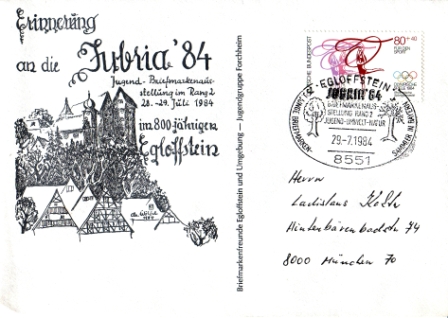 Erinnerung
an die Jubria '84
Jugend-Briefmarkenaus-
stellung im Rang 2
28.-29. Juli 1984
im 800-jährigen
Egloffstein
Briefmarkenfreunde Egloffstein und Umgebung — Jugendgruppe Forchheim
80+40
FÜR DEN
SPORT
DEUTSCHE BUNDESPOST
EGLOFFSTEIN
JUBRIA '84
BRIEFMARKENAUS-
STELLUNG RANG 2
JUGEND-UMWELT-NATUR
29.-7.1984
8551
Herrn
Ladislaus
Hinterbärenbadstr. 74
8000 München 70